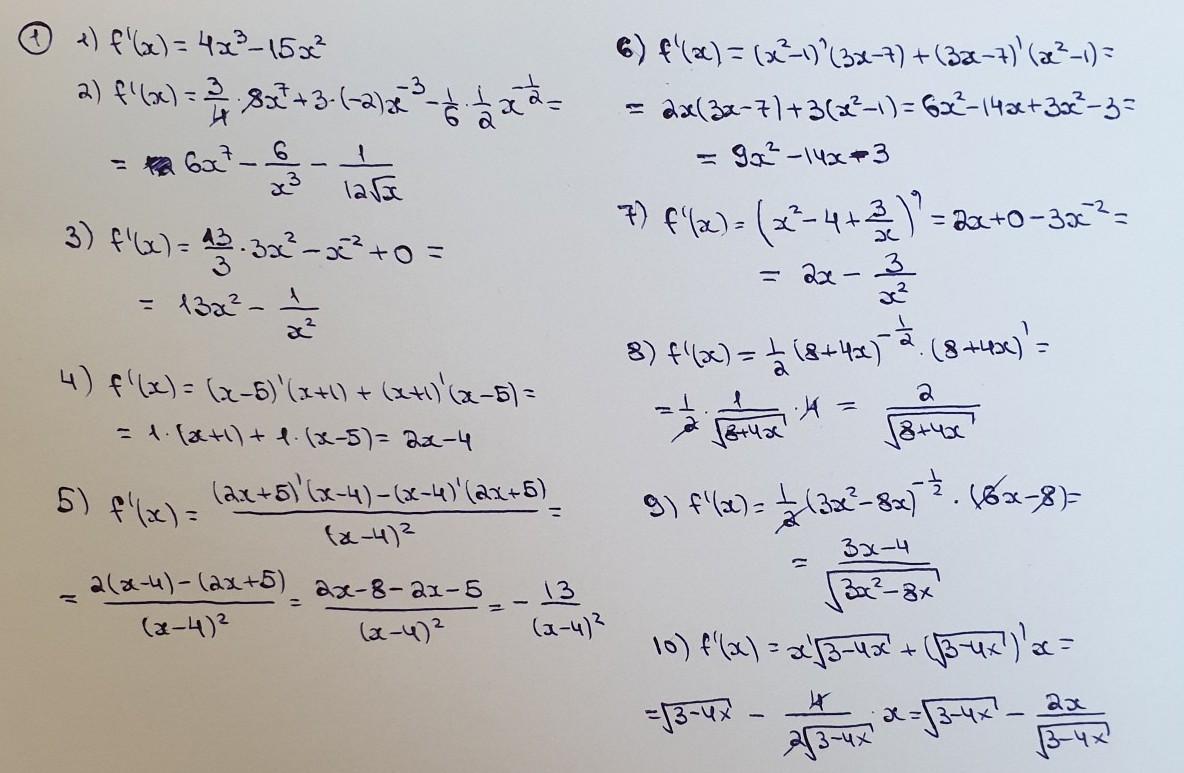 ① 1) f'(x) = 4x³ - 15x²
2) f'(x) = 3/4 · 8x⁷ + 3·(-2)x⁻³ - 1/6 · 1/2 x^(-1/2) =
= 6x⁷ - 6/x³ - 1/(12√x)
3) f'(x) = 13/3 · 3x² - x⁻² + 0 =
= 13x² - 1/x²
4) f'(x) = (x-5)'(x+1) + (x+1)'(x-5) =
= 1·(x+1) + 1·(x-5) = 2x-4
5) f'(x) = ((2x+5)'(x-4) - (x-4)'(2x+5))/(x-4)² =
= (2(x-4) - (2x+5))/(x-4)² = (2x-8-2x-5)/(x-4)² = - 13/(x-4)²
6) f'(x) = (x²-1)'(3x-7) + (3x-7)'(x²-1) =
= 2x(3x-7) + 3(x²-1) = 6x² - 14x + 3x² - 3 =
= 9x² - 14x - 3
7) f'(x) = (x² - 4 + 3/x)' = 2x + 0 - 3x⁻² =
= 2x - 3/x²
8) f'(x) = 1/2 (8+4x)^(-1/2) · (8+4x)' =
= 1/2 · 1/√(8+4x) · 4 = 2/√(8+4x)
9) f'(x) = 1/2 (3x²-8x)^(-1/2) · (6x-8) =
= (3x-4)/√(3x²-8x)
10) f'(x) = x'√(3-4x) + (√(3-4x))'x =
= √(3-4x) - 4/(2√(3-4x)) · x = √(3-4x) - 2x/√(3-4x)